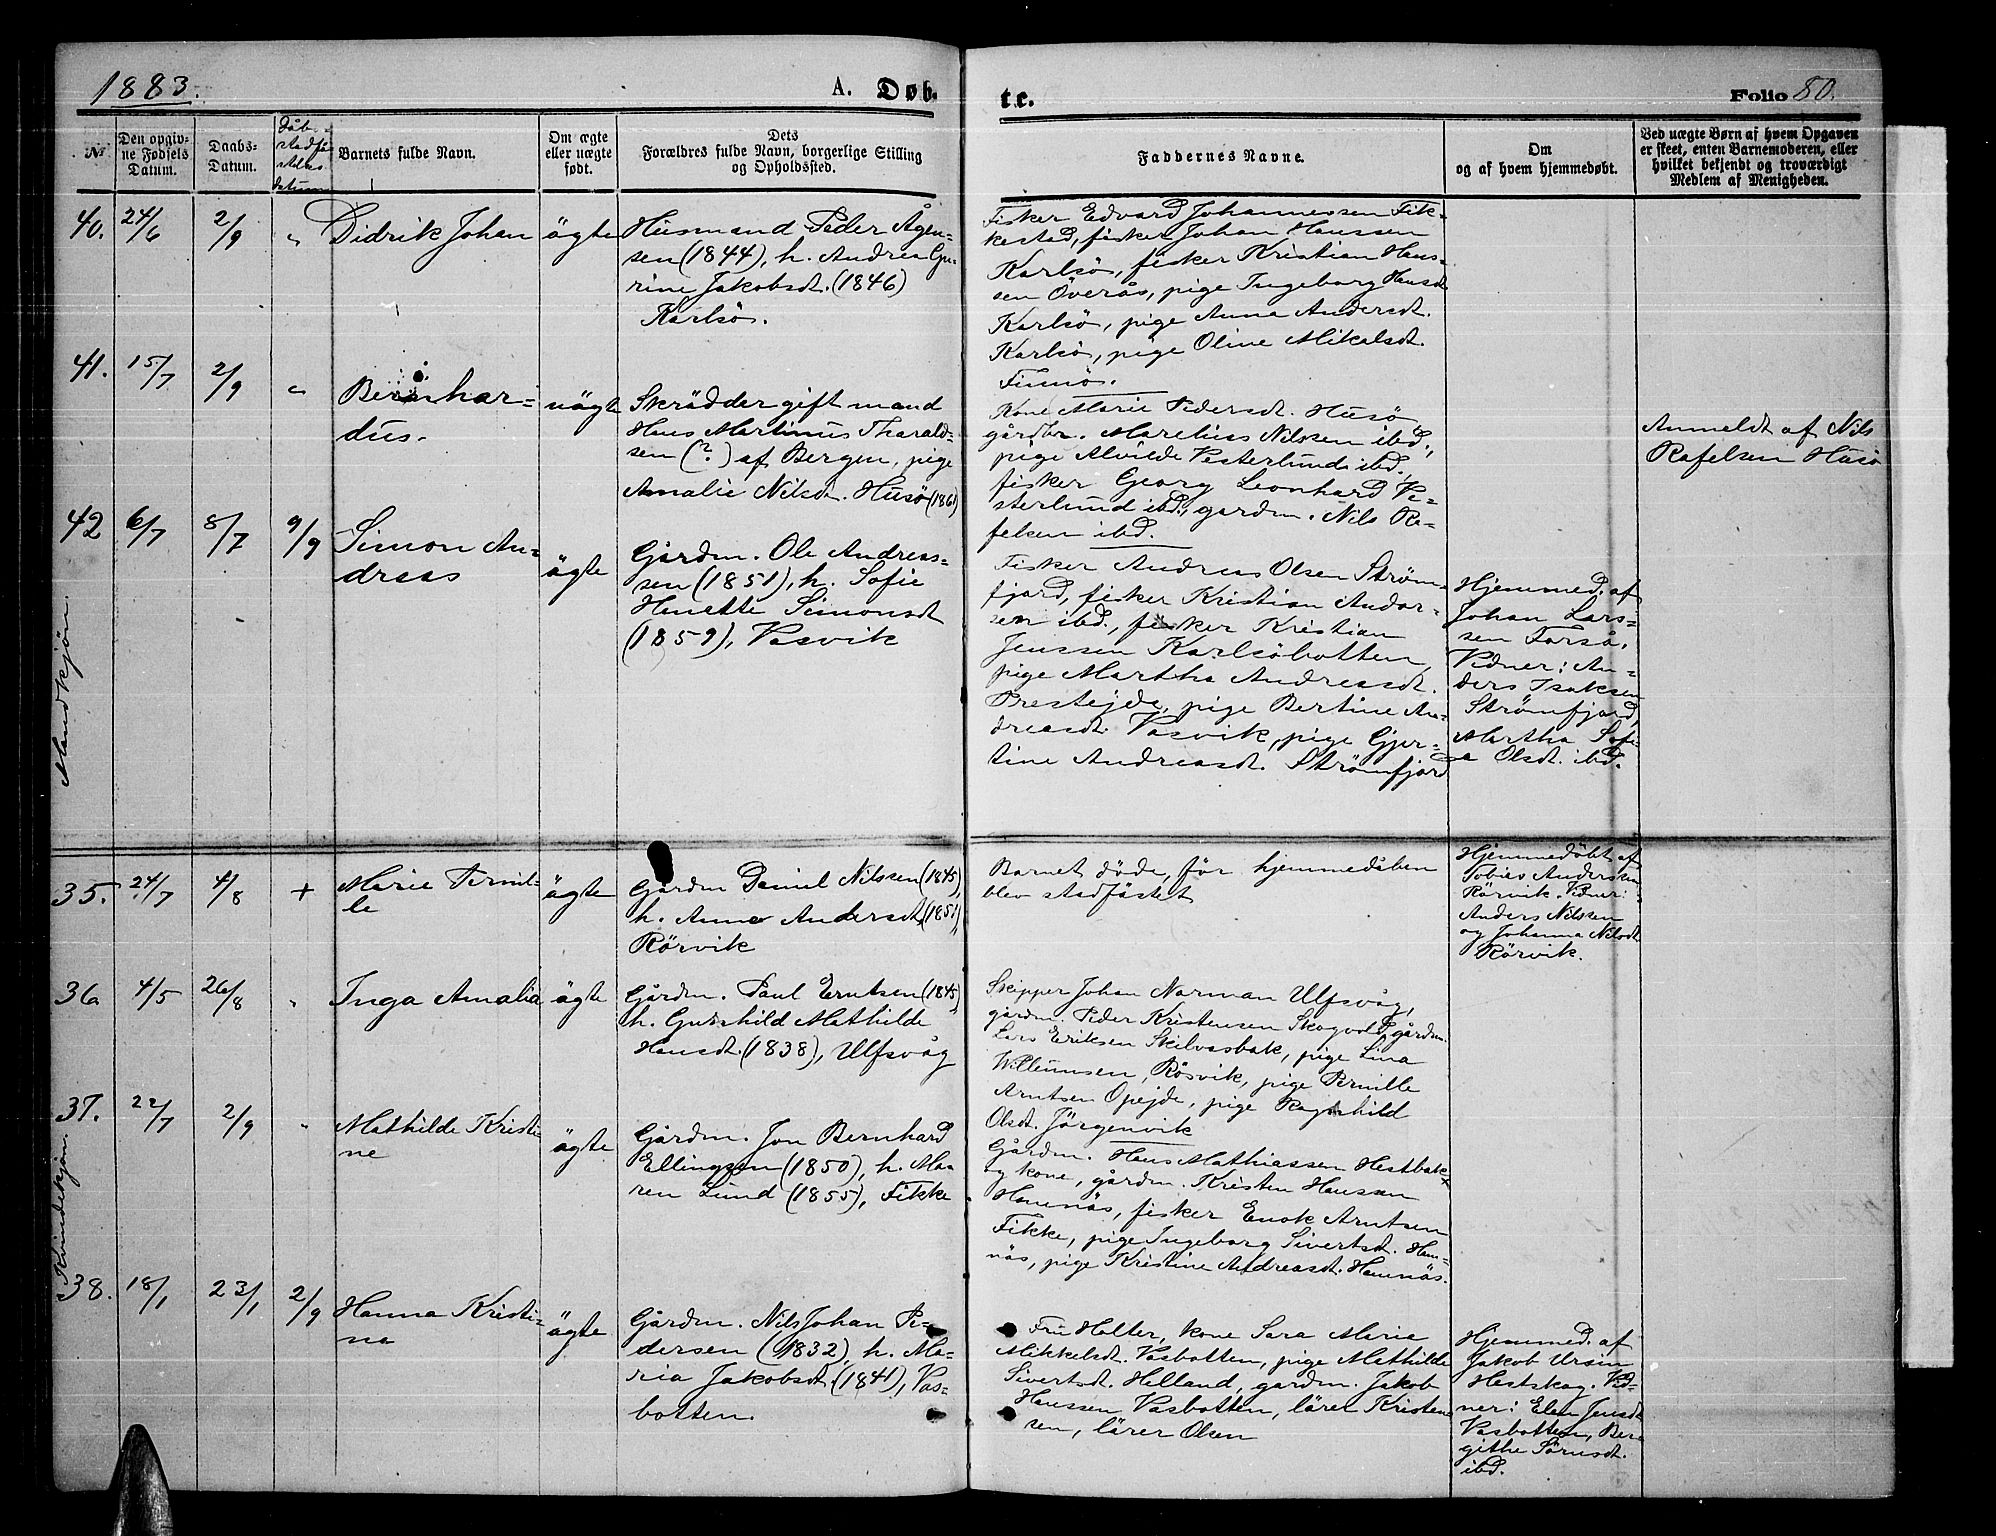 1883.
A. Døb-
te.
Folio 80.
№
Den opgiv-
ne Fødsels
Datum.
Daabs-
Datum.
Dåb-
stadfæ-
stelses
datum
Barnets fulde Navn.
Om ægte
eller uægte
født.
Dets
Forældres fulde Navn, borgerlige Stilling
og Opholdssted.
Faddernes Navne.
Om
og af hvem hjemmedøbt.
Ved uægte Børn af hvem Opgaven
er skeet, enten Barnemoderen, eller
hvilket bekjendt og troværdigt
Medlem af Menigheden.
Mandkjøn.
40. 24/6 2/9 " Didrik Johan ägte
Husmand Peder Ågen-
sen (1844), h. Andrea Gu-
rine Jakobsdt. (1846)
Karlsö.
Fisker Edvard Johannessen Fik-
kestad, fisker Johan Hanssen
Karlsö, fisker Kristian Hans-
sen Överås, pige Ingeborg Hansdt
Karlsö, pige Anna Andersdt.
Karlsö, pige Oline Mikalsdt.
Finnö.
41. 15/7 2/9 " Bernhar-
dus. uägte
Skrädder gift mand
Hans Martinus Tharald-
sen (?) af Bergen, pige
Amalie Nilsdt. Husö (1861)
Kone Marie Pedersdt. Husö
gårdbr. Marelius Nilssen ibd.,
pige Alvilde Vesterlund ibd.,
fisker Georg Leonhard Ve-
sterlund ibd., gårdm. Nils Ra-
felsen ibd.
Anmeldt af Nils
Rafelsen Husö
42 6/7 8/7 9/9 Simon An-
dreas ägte
Gårdm. Ole Andreas-
sen (1851), h. Sofie
Henette Simonsdt
(1859), Vasvik
Fisker Andreas Olsen Ström-
fjord, fisker Kristian Andor-
sen ibd., fisker Kristian
Jenssen Karlsöbotten,
pige Martha Andreasdt.
Prestejde, pige Bertine An-
dreasdt. Vasvik, pige Gjer-
tine Andreasdt. Strömfjord
Hjemmed. af
Johan Lars-
sen Torså.
Vidner: An-
ders Isaksen
Strömfjord,
Martha Sofi-
e Olsdt. ibd.
Kvindekjön.
35. 24/7 4/8 + Marie Pernil-
le ägte
Gårdm Daniel Nilssen (1845),
h. Anna Andersdt. (1851),
Rörvik
Barnet döde, för hjemmedåben
blev stadfästet
Hjemmedöbt af
Tobias Andersen
Rörvik. Vidner:
Anders Nilssen
og Johanna Nilsdt
Rörvik.
36 4/5 26/8 " Inga Amalia ägte
Gårdm. Paul Erntsen (1845),
h. Gunhild Mathilde
Hansdt. (1838), Ulfsvåg
Skipper Johan Norman Ulfsvåg,
gårdm. Peder Kristensen Skogvold, gårdm.
Lars Eriksen Skilvasbak, pige Lina
Willumsen, Rösvik, pige Pernille
Arntsen Opejde, pige Ragnhild
Olsdt. Jörgenvik
37. 22/7 2/9 " Mathilde Kristi-
ne ägte
Gårdm. Jon Bernhard
Ellingsen (1850), h. Ma-
ren Lund (1855), Fikke
Gårdm. Hans Mathiassen Hestbak
og kone, gårdm. Kristen Hanssen
Hamnäs, fisker Enok Arntsen
Fikke, pige Ingeborg Sivertsdt. Ham-
näs, pige Kristine Andreasdt. Hamnäs.
38. 18/1 23/1 2/9 Hanna Kristi-
na ägte
Gårdm. Nils Johan Pe-
dersen (1832), h. Ma-
ria Jakobsdt. (1841), Vas-
botten.
Fru Holter, kone Sara Marie
Mikkelsdt. Vasbotten, pige Mathilde
Sivertsdt. Helland, gårdm. Jakob
Hanssen Vasbotten, lärer Kristen-
sen, lärer Olsen
Hjemmed. af
Jakob Ursin
Hestskog. Vid-
ner: Elen Jensdt
Vasbotten, Ber-
githe Sörnsdt.
ibd.